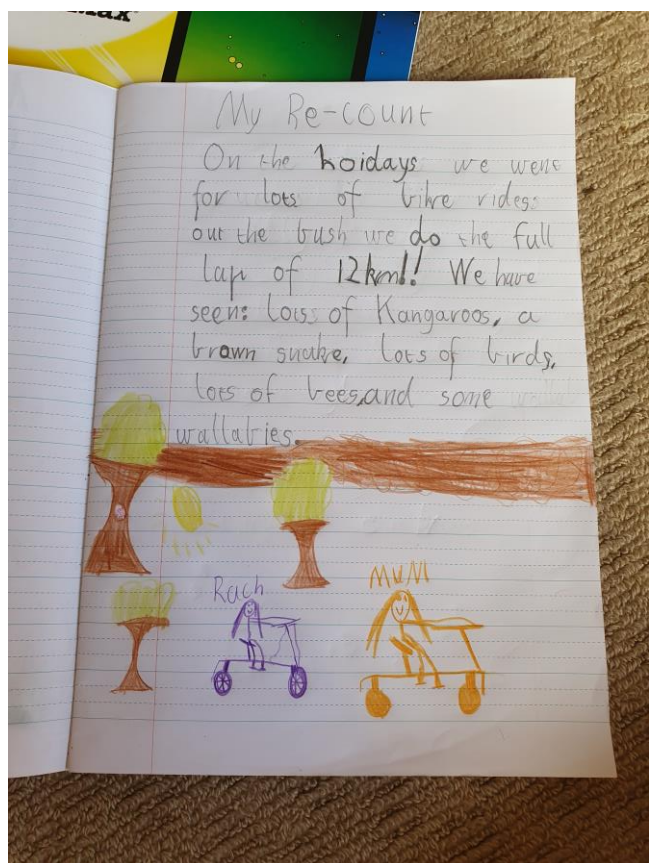 Max
My Re-count
On the hoidays we went
for lots of bike rides:
out the bush we do the full
lap of 12km!! We have
seen: lots of Kangaroos, a
brown snake, lots of birds,
lots of bees,and some
wallabies.
Rach
MUM